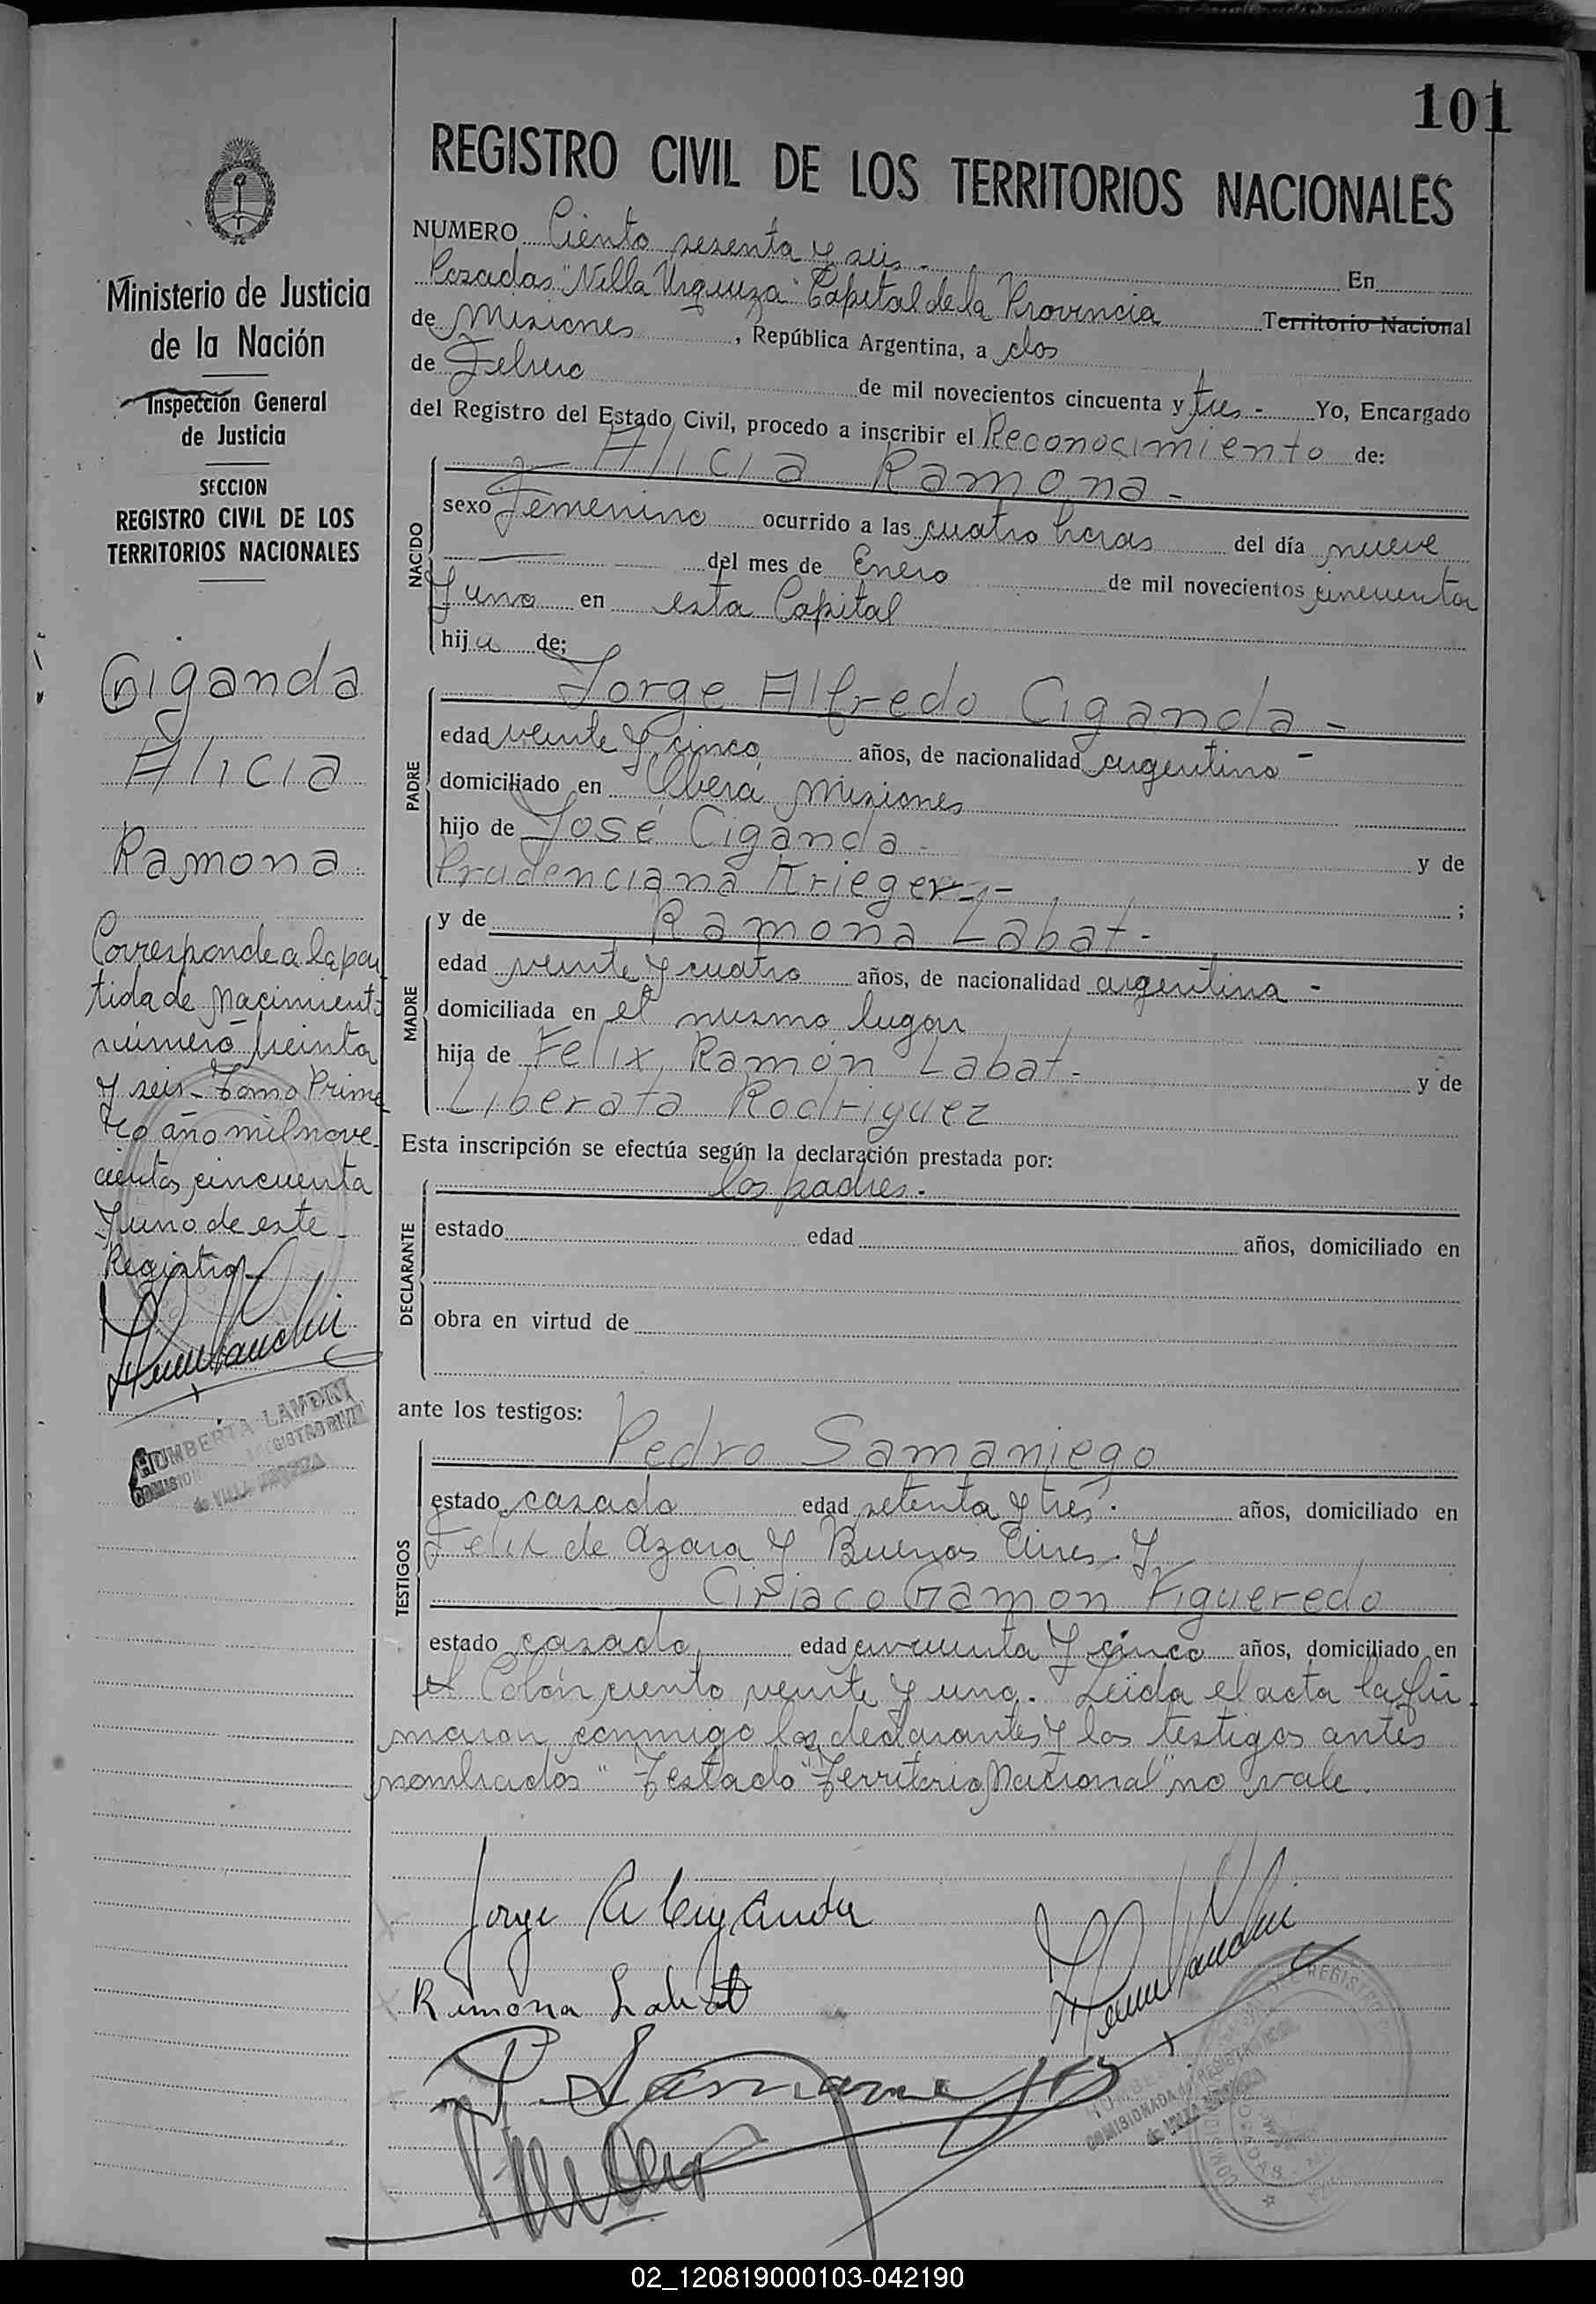 101
REGISTRO CIVIL DE LOS TERRITORIOS NACIONALES
Ministerio de Justicia
de la Nación
Inspección General
de Justicia
SECCION
REGISTRO CIVIL DE LOS
TERRITORIOS NACIONALES
Ciganda
Alicia
Ramona
Corresponde a la par
tida de nacimiento
número treinta
y seis - Tomo Prime
ro año mil nove-
cientos cincuenta
y uno de este
Registro -
HUMBERTA LANDINI
de VILLA URQUIZA
NUMERO Ciento sesenta y seis - En
Posadas "Villa Urquiza" Capital de la Provincia
de Misiones , República Argentina, a dos Territorio Nacional
de Febrero de mil novecientos cincuenta y tres - Yo, Encargado
del Registro del Estado Civil, procedo a inscribir el Reconocimiento de:
NACIDO
Alicia Ramona -
sexo Femenino ocurrido a las cuatro horas del día nueve
del mes de Enero de mil novecientos cincuenta
y uno en esta Capital
hija de:
PADRE
Jorge Alfredo Ciganda -
edad veinte y cinco años, de nacionalidad argentino -
domiciliado en Oberá Misiones
hijo de José Ciganda - y de
Prudenciana Krieger - - ;
MADRE
y de Ramona Labat -
edad veinte y cuatro años, de nacionalidad argentina -
domiciliada en el mismo lugar
hija de Felix Ramón Labat - y de
Liberata Rodriguez
Esta inscripción se efectúa según la declaración prestada por:
DECLARANTE
los padres .
estado edad años, domiciliado en
obra en virtud de
ante los testigos:
TESTIGOS
Pedro Samaniego
estado casado edad setenta y tres . años, domiciliado en
Felix de Azara y Buenos Aires . Y
Ciriaco Ramon Figueredo
estado casado edad cincuenta y cinco años, domiciliado en
el Colón ciento veinte y uno . Leida el acta la fir
maron conmigo los declarantes y los testigos antes
nombrados " Testado "Territorio Nacional" no vale .
Jorge A Ciganda
Ramona Labat
P. Samaniego
COMISIONADA del REGISTRO CIVIL
de VILLA URQUIZA
02_120819000103-042190